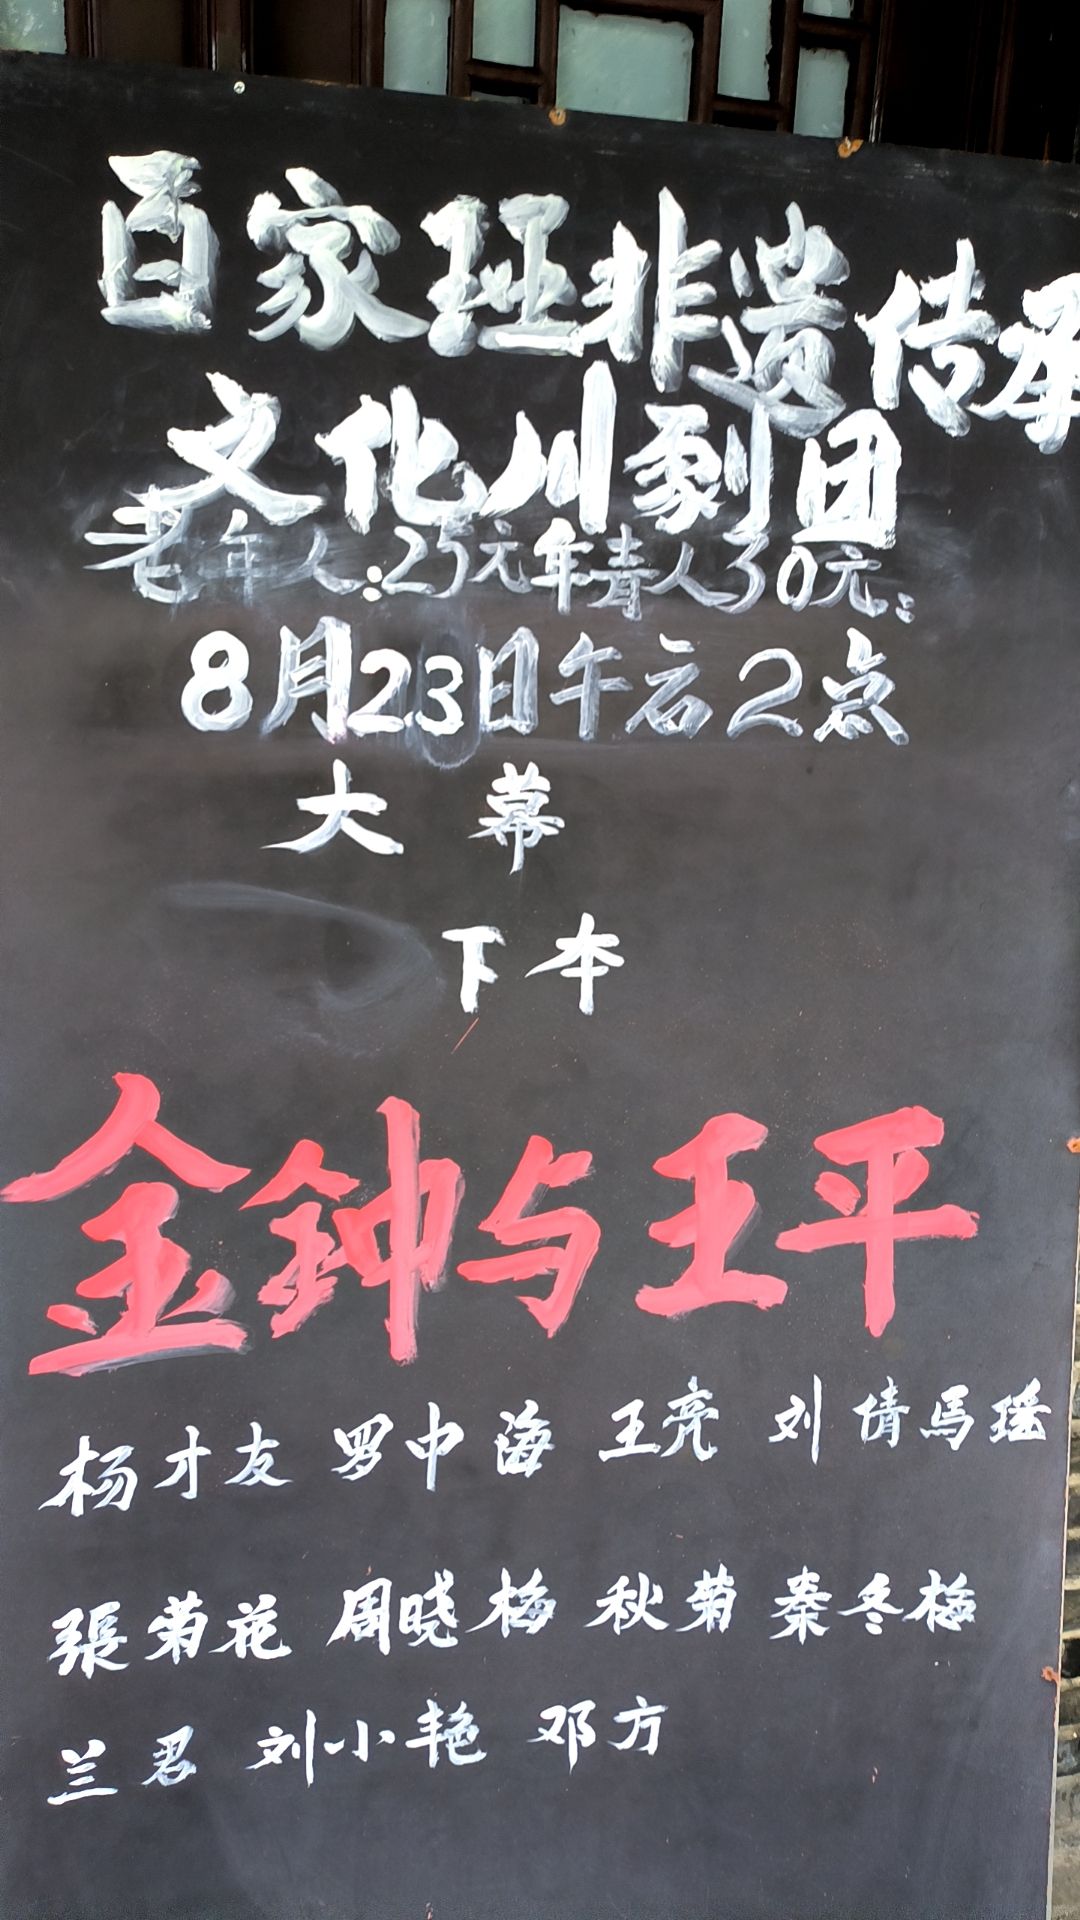 百家班非遗传承
文化川剧团
老年人:25元年青人30元:
8月23日午后2点
大 幕
下 本
金钟与王平
杨才友 罗中海 王亮 刘倩 馬瑶
張菊花 周晓梅 秋菊 秦冬梅
兰君 刘小艳 邓方